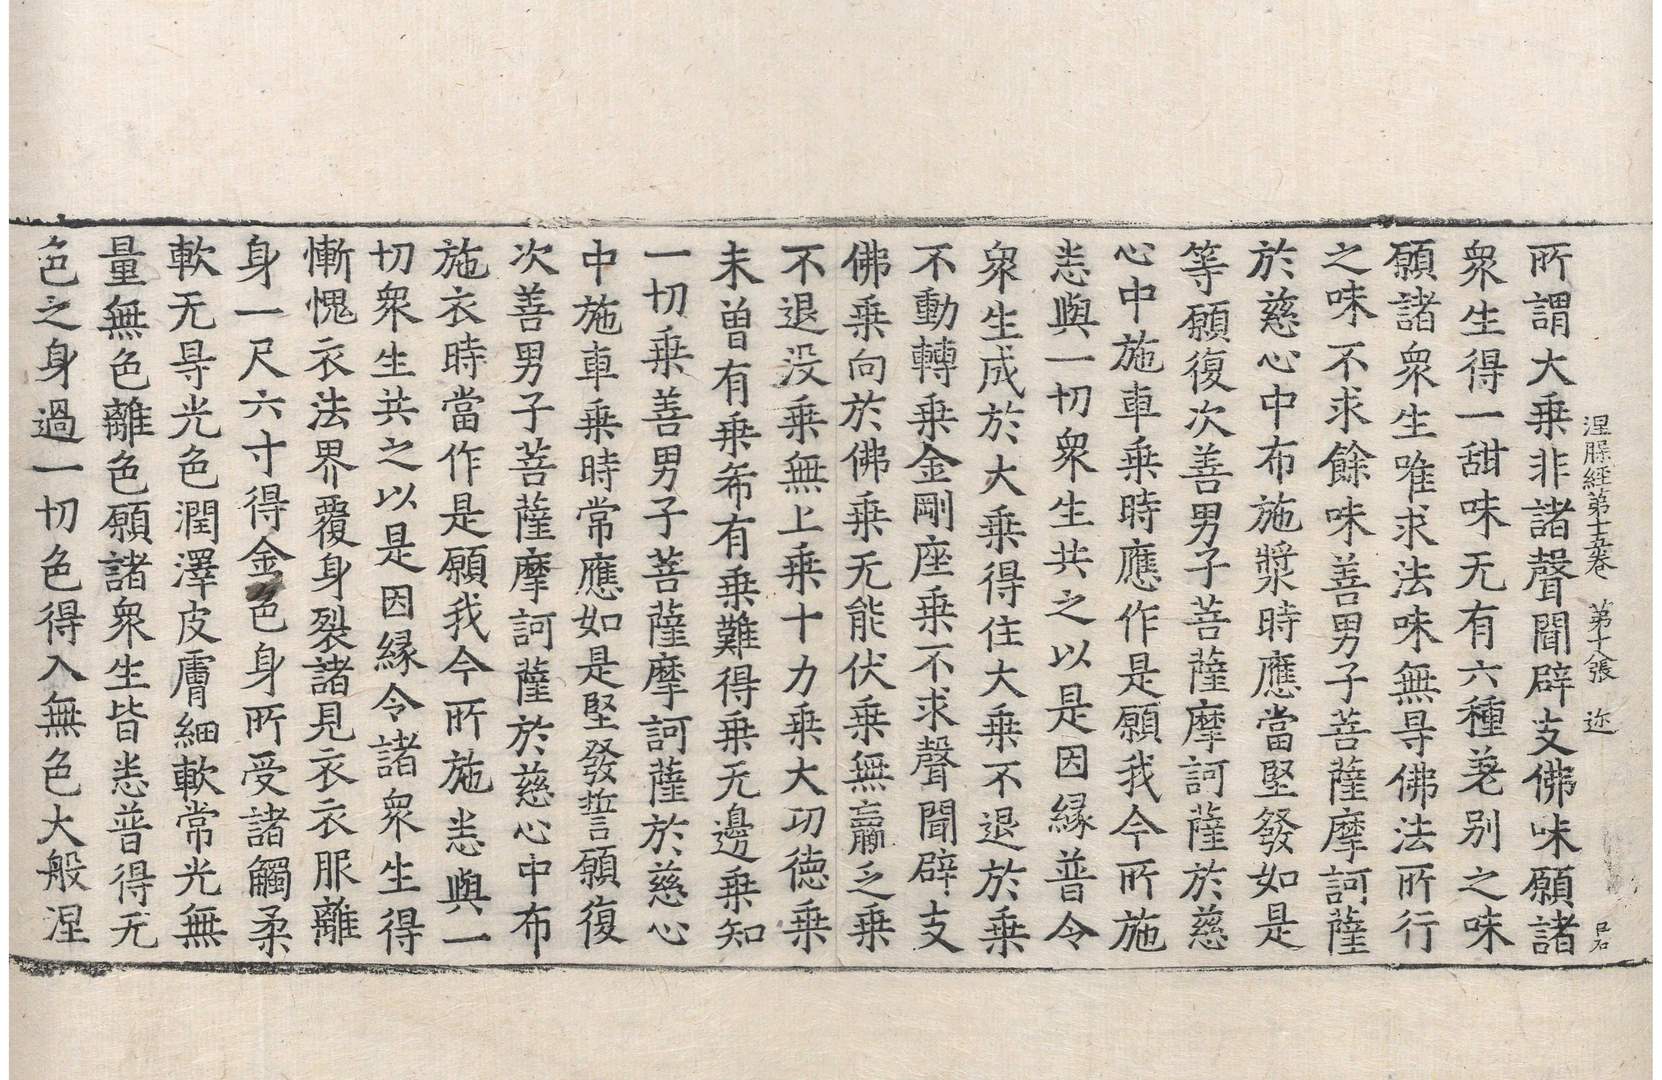 涅脲經第十五卷　第十八張　迩
所謂大乗非諸聲聞辟支佛味願諸
衆生得一甜味无有六種差别之味
願諸衆生唯求法味無㝵佛法所行
之味不求餘味善男子菩薩摩訶薩
於慈心中布施漿時應當堅發如是
等願復次善男子菩薩摩訶薩於慈
心中施車乗時應作是願我今所施
悉與一切衆生共之以是因縁普令
衆生成於大乗得住大乗不退於乗
不動轉乗金剛座乗不求聲聞辟支
佛乗向於佛乗无能伏乗無羸乏乗
不退没乗無上乗十力乗大功德乗
未曽有乗希有乗難得乗无邊乗知
一切乗善男子菩薩摩訶薩於慈心
中施車乗時常應如是堅發誓願復
次善男子菩薩摩訶薩於慈心中布
施衣時當作是願我今所施悉與一
切衆生共之以是因縁令諸衆生得
慚愧衣法界覆身裂諸見衣衣服離
身一尺六寸得金色身所受諸觸柔
軟无㝵光色潤澤皮膚細軟常光無
量無色離色願諸衆生皆悉普得无
色之身過一切色得入無色大般涅